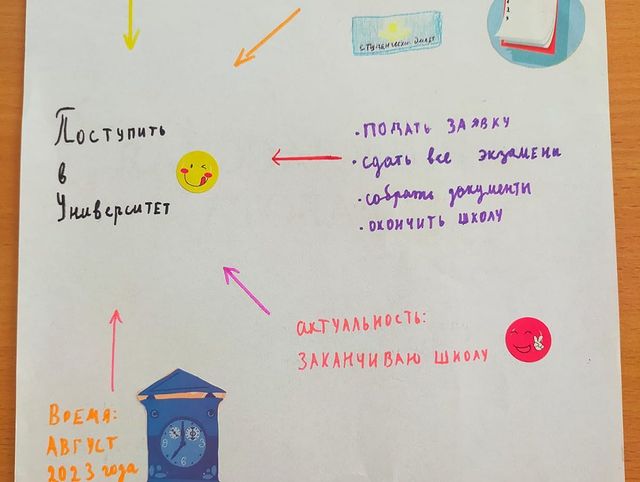 студенчески билет
Поступить
в
Университет
• подать заявку
• сдать все экзамени
• собрать документи
• окончить школу
актуальность:
заканчиваю школу
Время:
Август
2023 года